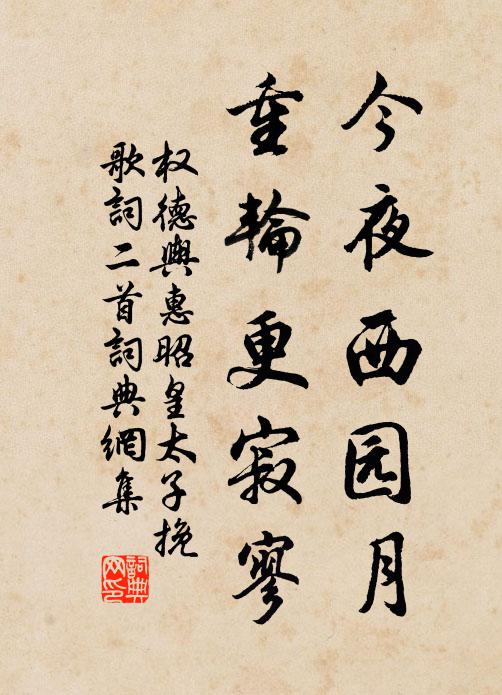 今夜西园月
重輪更寂寥
权德輿惠昭皇太子挽
歌詞二首詞典網集
詞典网印